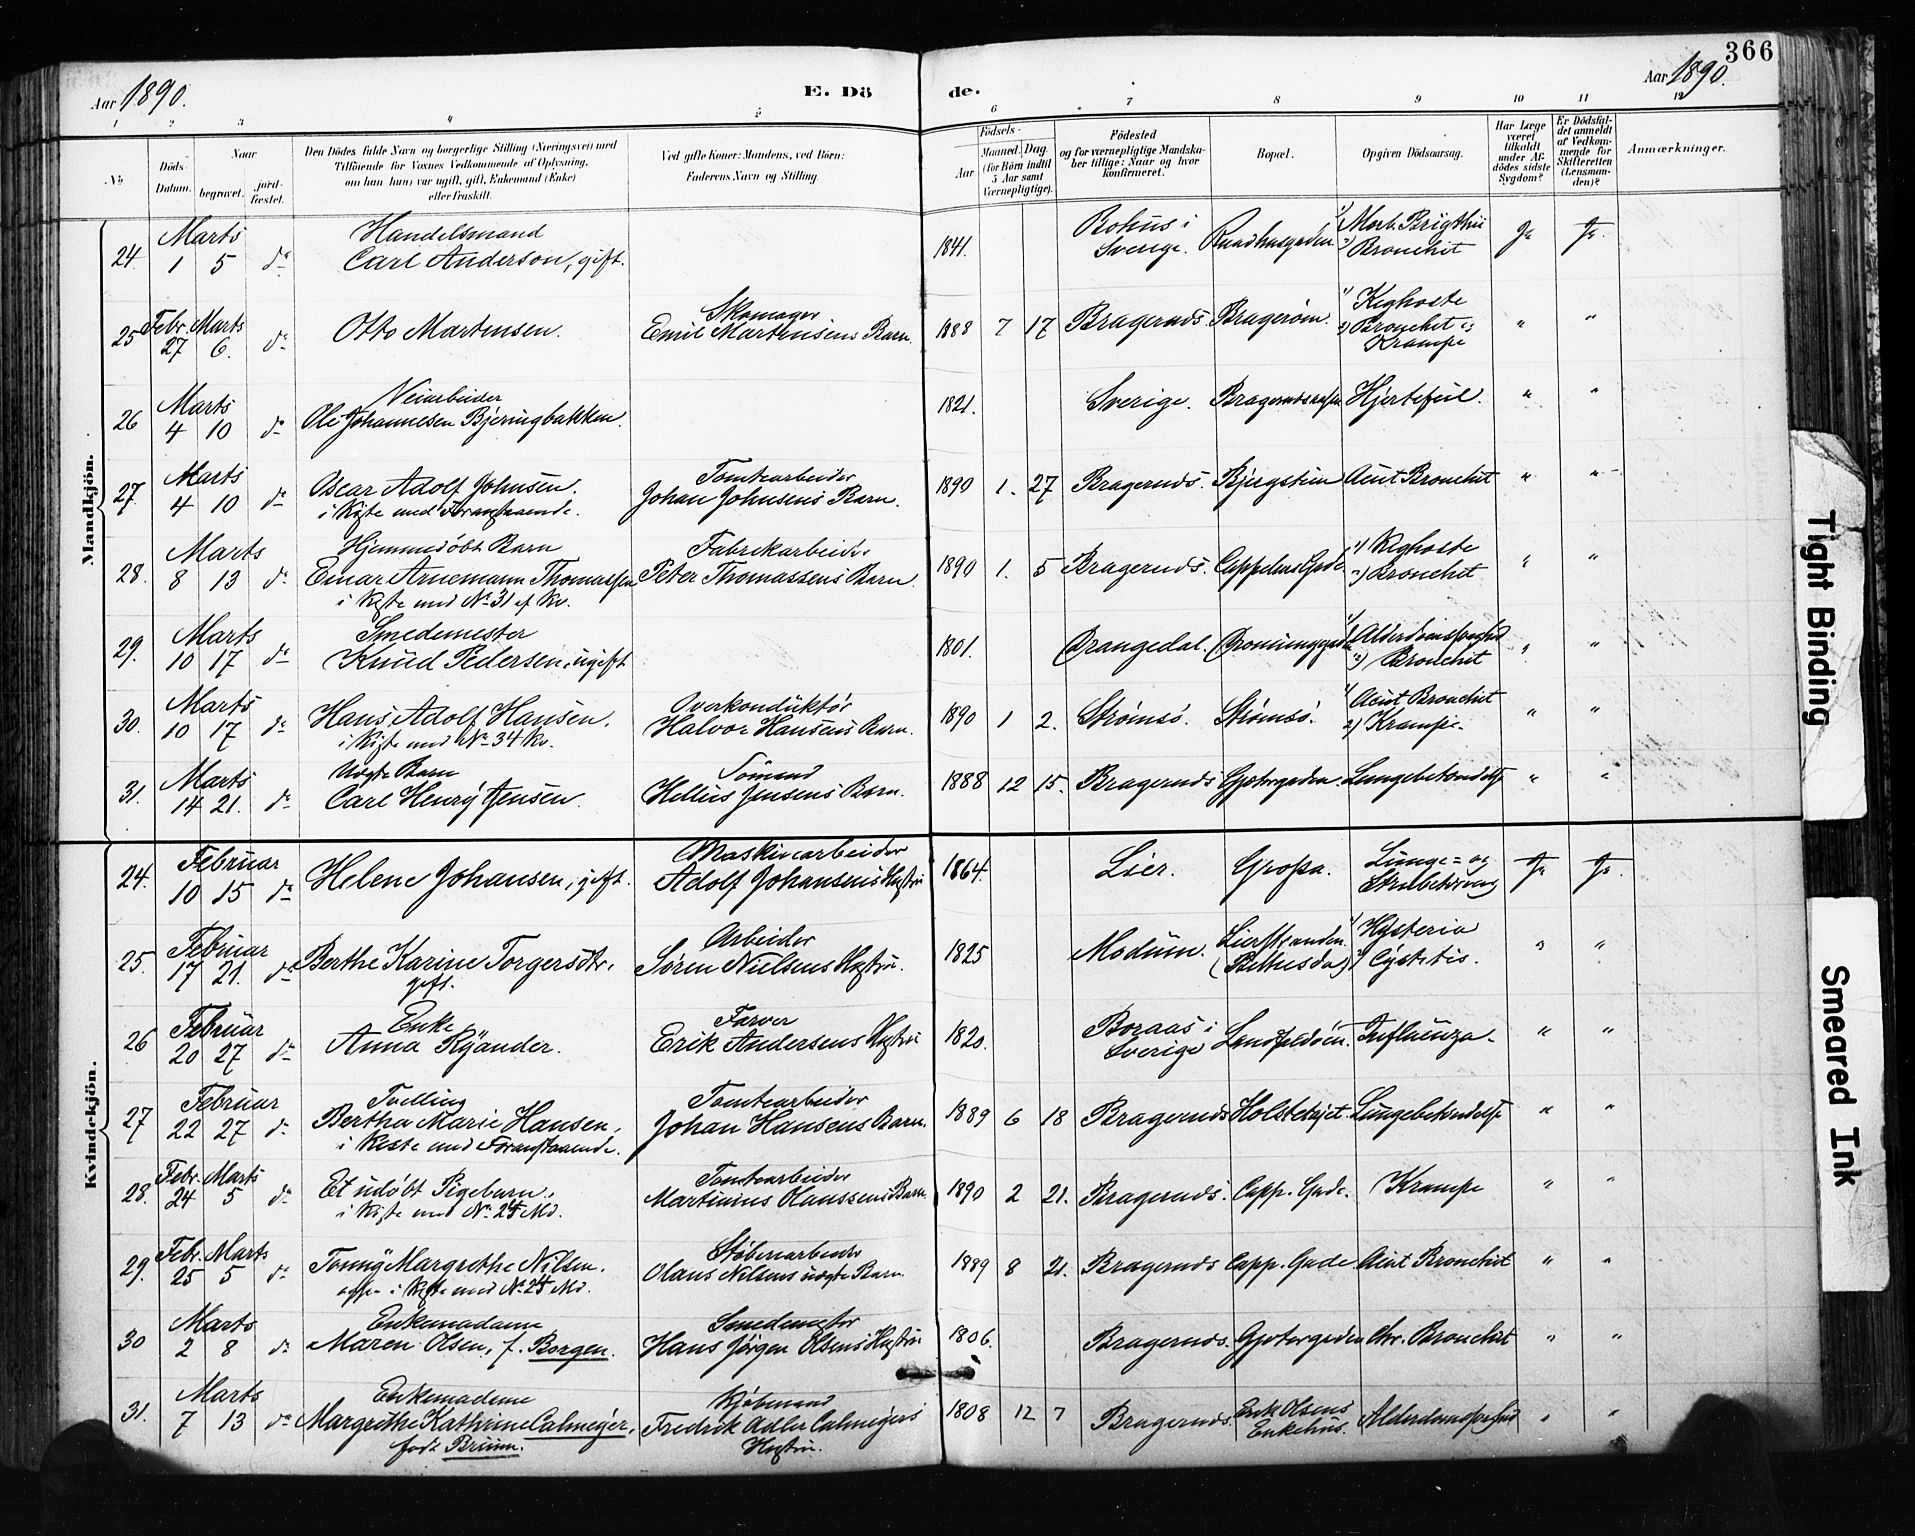 366
Aar 1890.
E. Dö
de.
Aar 1890.
1 2 3 4 5 6 7 8 9 10 11 12
No
Döds-Datum.
Naar
begravet.
jord-fæstet.
Den Dödes fulde Navn og borgerlige Stilling (Næringsvei) med
Tilföiende for Voxnes Vedkommende af Oplysning,
om han (hun) var ugift, gift, Enkemand (Enke)
eller fraskilt.
Ved gifte Koner: Mandens, ved Börn:
Faderens Navn og Stilling.
Födsels-
Aar
Maaned. Dag.
(for Börn indtil
5 Aar samt
Værnepligtige).
Födested
og for værnepligtige Mandska-
ber tillige: Naar og hvor
konfirmeret.
Bopæl.
Opgiven Dödsaarsag.
Har Læge
været
tilkaldt
under Af-
dödes sidste
Sygdom?
Er Dödsfal-
det anmeldt
af Vedkom-
mende for
Skifteretten
(Lensman-
den)?
Anmærkninger.
Mandkjön.
24. Marts 1 5 do Handelsmand
Carl Anderson, gift. 1841. Bohus i
Sverige. Raadhusgaden 1) Morb. Brigthii
2) Bronchit Ja Ja.
25 Febr. 27 Marts 6. do Otto Martinsen. Skomager
Emil Martinsens Barn. 1888 7 17 Bragernds. Bragerøen. 1) Kighoste
2) Bronchit og
Krampe " "
26 Marts 4 10 do Veiarbeider
Ole Johannesen Bjerringbakken. 1821. Sverige. Hjertefeil. " "
27. Marts 4 10 do Oscar Adolf Johnsen.
i Kiste med Foranstaaende. Tomtearbeider
Johan Johnsens Barn. 1890 1. 27 Bragernds. Bjergstien Acut Bronchit " "
28. Marts 8 13 do Hjemmedøbt Barn
Einar Arnemann Thomassen
i Kiste med No 31 af Kv. Fabrikarbeider
Peter Thomassens Barn. 1890 1. 5 Bragernds. Cappelens Gade 1) Kighoste
2) Bronchit " "
29. Marts 10 17 do Smedemester
Knud Pedersen, ugift 1801. Drangedal. 1) Alderdomssvaghed
2) Bronchit " "
30. Marts 10 17 do Hans Adolf Hansen.
i Kiste med No 34 Kv. Overkonduktør
Halvor Hansens Barn. 1890 1 2. Strømsø. Strømsø. 1) Acut Bronchit
2) Krampe. " "
31. Marts 14 21. do Uægte Barn
Carl Henry Jensen. Sømand
Hellius Jensens Barn. 1888 12 15. Bragernds Gjetergaden. Lungebetændelse " "
Kvindekjön.
24. Februar 10 15 do Helene Johansen, gift. Maskinarbeider
Adolf Johansens Hustru 1864. Lier. Gropa. Lunge= og
Ja Ja.
25. Februar 17 21. do Berthe Karine Torgersdtr.
gift. Arbeider
Søren Nielsens Hustru. 1825 Modum. Lierstranden
(Bethesda) 1) Hysteria
2) Cystitis. " "
26 Februar 20 27 do Enke
Anna Ryander. Farver
Erik Andersens Hustru 1820. Boraas i
Sverige Landfaldøen. Influenza. " "
27 Februar 22 27 do Tvilling
Bertha Marie Hansen,
i Kiste med Foranstaaende. Tomtearbeider
Johan Hansens Barn. 1889 6 18 Bragernds Lungebetændelse " "
28. Febr. 24 Marts 5 do Et udøbt Pigebarn.
i Kiste med No 24 Md. Tomtearbeider
Martinius Hanssens Barn. 1890 2 21. Bragernds. Capp. Gade. Krampe " "
29. Febr. 25 Marts 5 do Tonny Margrethe Nilsen.
i Kiste med No 24 Md. Støberiarbeider
Olaus Nilsens uægte Barn. 1889 8 21. Bragernds Capp. Gade Acut Bronchit " "
30 Marts 2 8 do Enkemadame
Maren Olsen, f. Borgen. Smedemester
Hans Jørgen Olsens Hustru 1806. Bragernds. Gjetergaden Chr. Bronchit " "
31. Marts 7 13 do Enkemadame
Margrethe Kathrine Calmeyer,
født Bruun. Kjøbmand
Fredrik Adler Calmeyers
Hustru. 1808 12 7 Bragernds. Enk Olsens
Enkehus. Alderdomssvaghed " "
Tight Binding
Smeared Ink